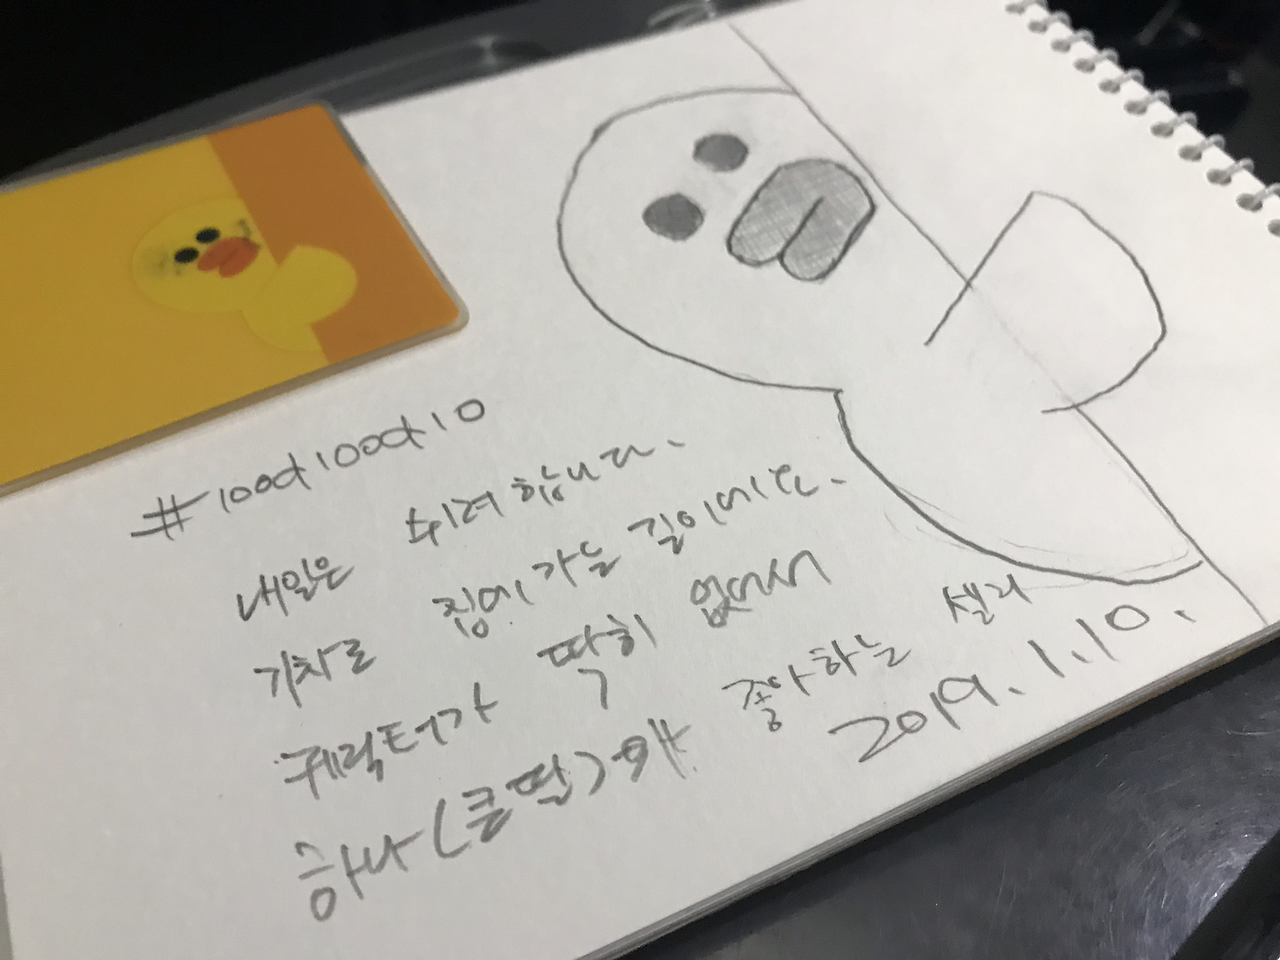 #100d100d10
내일은 쉬려합니다.
기차로 집에 가는 길이에요.
캐릭터가 딱히 없어서
하나(큰딸)가 좋아하는 샐리
2019.1.10.